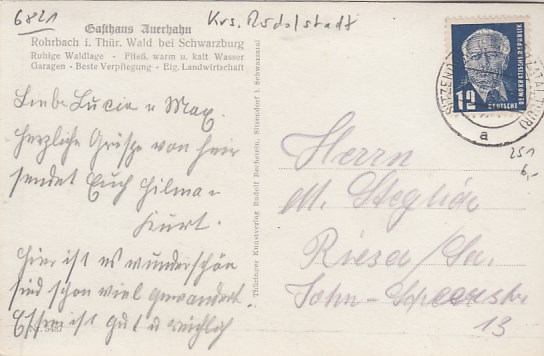 6821
Krs. Rudolstadt
Gasthaus Auerhahn
Rohrbach i. Thür. Wald bei Schwarzburg
Ruhige Waldlage - Fließ. warm u. kalt Wasser
Garagen - Beste Verpflegung - Eig. Landwirtschaft
12
DEUTSCHE
DEMOKRATISCHE REPUBLIK
SITZEND
a
251
6,-
Liebe Lucia u Max.
herzliche Grüße von hier
sendet Euch Hilma u
Kurt.
hier ist es wunderschön
sind schon viel gewandert.
Essen ist gut u reichlich
Thüringer Kunstverlag Rudolf Bechstein, Sitzendorf i. Schwarzatal
Herrn
M.
Riesa/Sa.
13